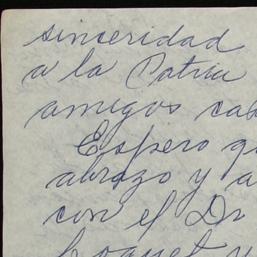 sinceridad
a la Patria
amigos cab
Espero q
abrazo y a
con el Dr